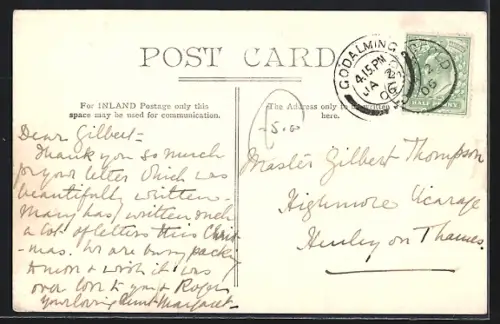 POST CARD
For INLAND Postage only this
space may be used for communication.
The Address only to be written
here.
GODALMING
4.15 PM
JA 2
09
HALFPENNY
5.00
Dear Gilbert-
Thank you so much
for your letter which was
beautifully written.
Mary has written such
a lot of letters this Christ
-mas. We are busy packing
& wish it was
over love to you & Roger
Your loving Aunt Margaret-
Master Gilbert Thompson
Highmore Vicarage
Henley on Thames.